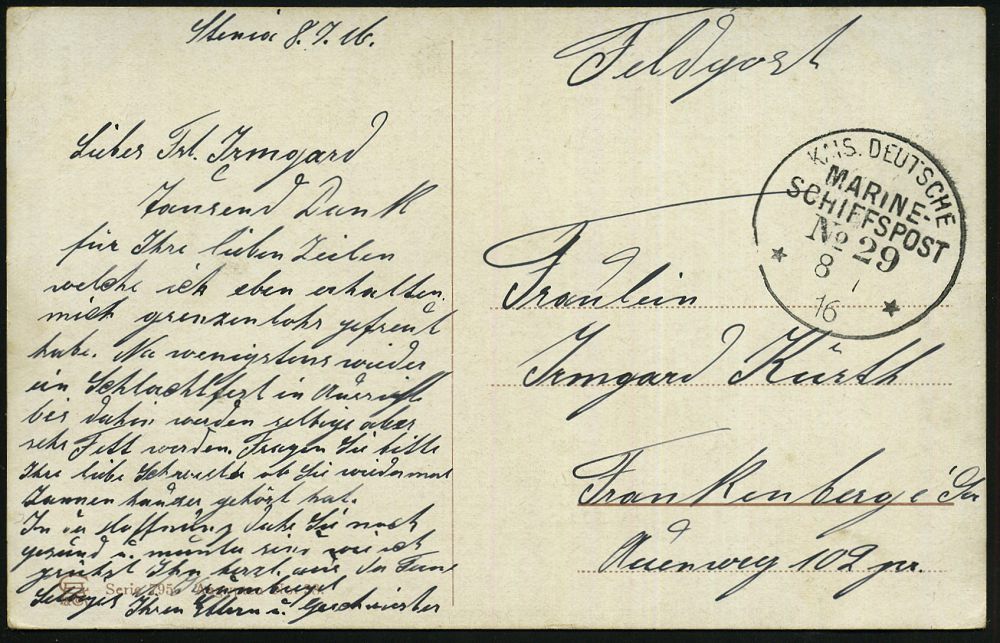 Stenia 8.7.16.
Liebes Frl. Irmgard
Tausend Dank
für Ihre lieben Zeilen
welche ich eben erhalten.
mich grenzenlohs gefreut
habe. Na wenigstens wieder
ein Schlachtfest in Aussicht
bis dahin werden selbige aber
sehr Fett werden. Fragen Sie bitte
Ihre liebe Schwester ob Sie wiedermal
gehört hat.
In der Hoffnung das Sie noch
gesund u. munter sind wie ich
grüßt Ihn herzl. aus der Ferne
Ihren Eltern u. Geschwister
Serie 195
Feldpost
KAIS. DEUTSCHE
MARINE-
SCHIFFSPOST
No 29
8 7
16
Fräulein
Irmgard Kürth
Frankenberg i/Sa
Auenweg 102 pr.